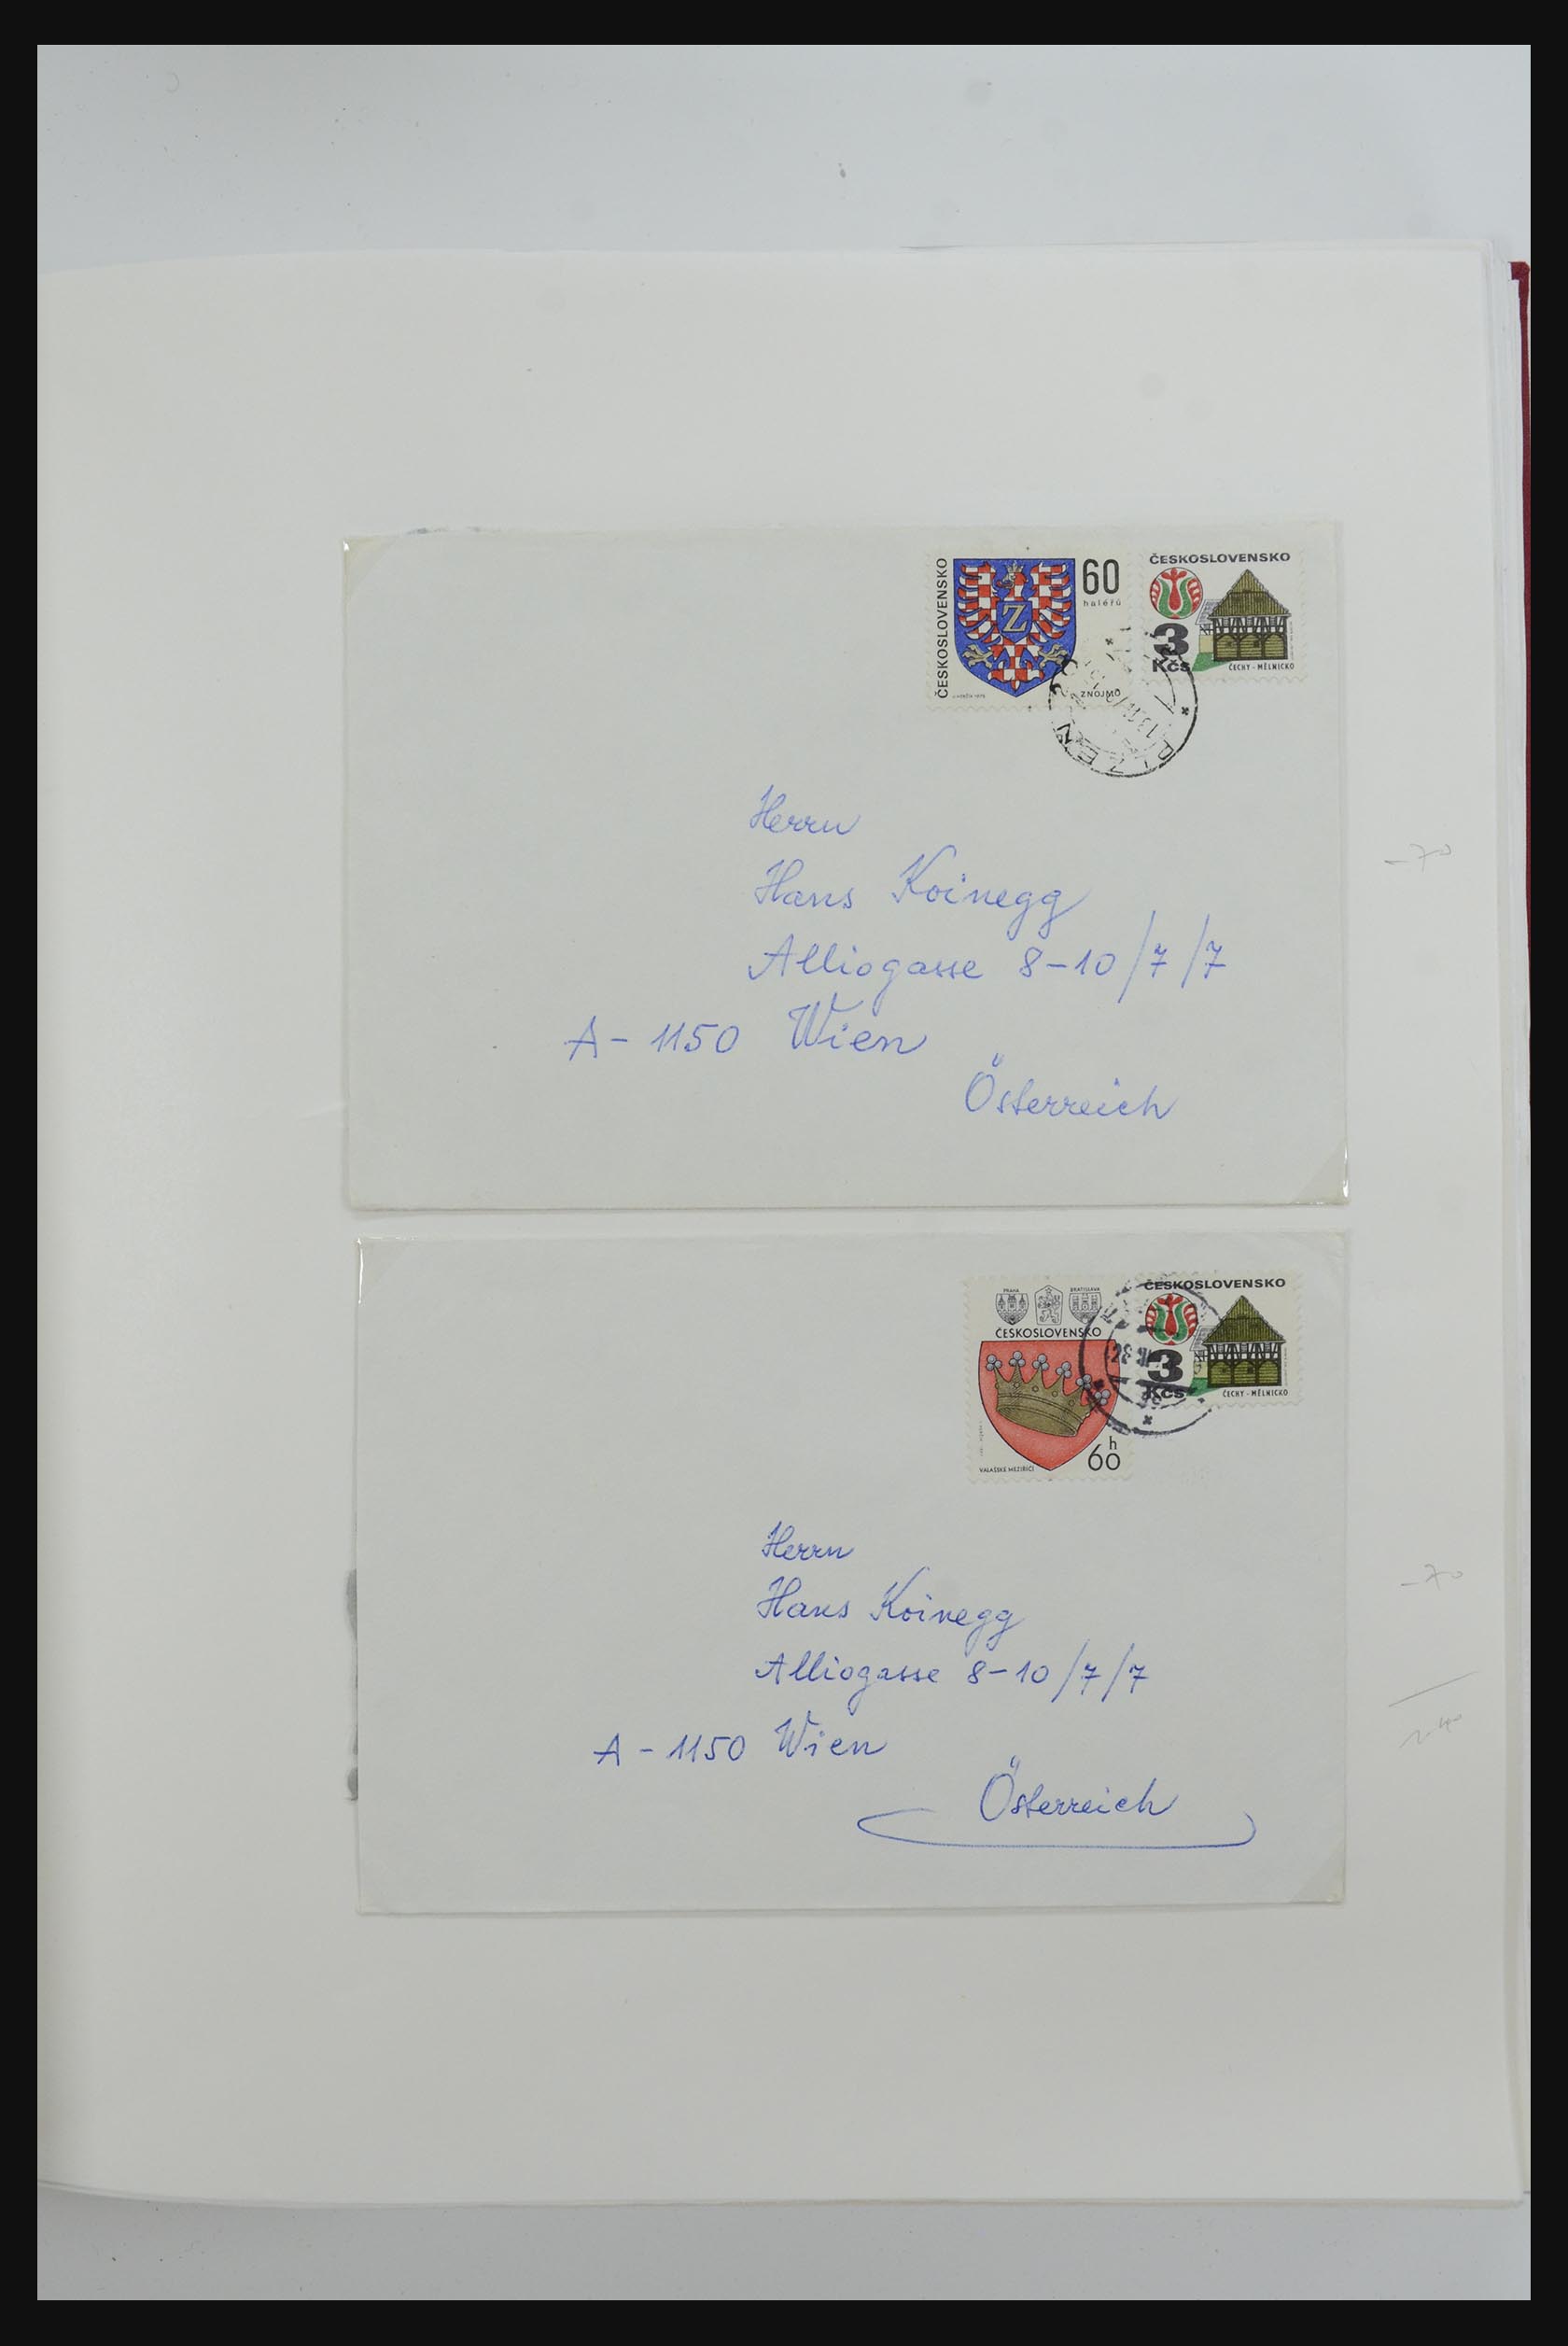 ČESKOSLOVENSKO
60
haléřů
Z
ZNOJMO
ČESKOSLOVENSKO
3
Kčs
ČECHY - MĚLNICKO
PLZEŇ
Herrn
Hans Koinegg
Alliogasse 8-10/7/7
A- 1150 Wien
Österreich
-70
PRAHA
BRATISLAVA
ČESKOSLOVENSKO
VALAŠSKÉ MEZIŘÍČÍ
60 h
ČESKOSLOVENSKO
3
Kčs
ČECHY - MĚLNICKO
Herrn
Hans Koinegg
Alliogasse 8-10/7/7
A - 1150 Wien
Österreich
-70